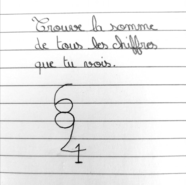 Trouve la somme
de tous les chiffres
que tu vois.
6
8
2
4